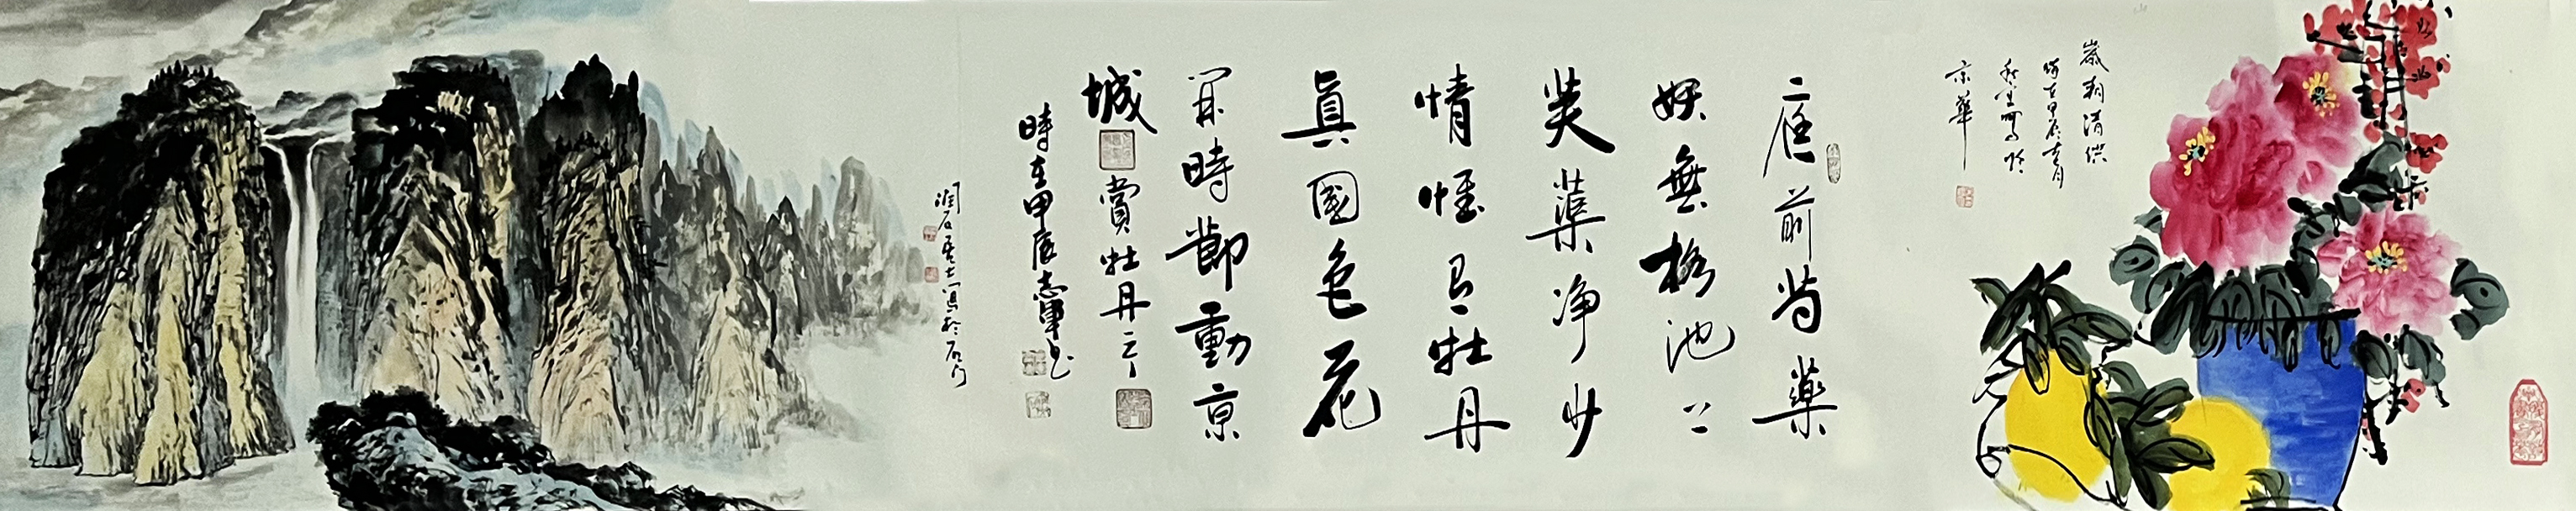 歲朝清供
時在甲辰月
寫於
京華
庭前芍藥
妖無格池上
芙蕖净少
情惟有牡丹
眞國色花
開時節動京
城
賞牡丹
時在甲辰志軍書
潤石居士寫於石門